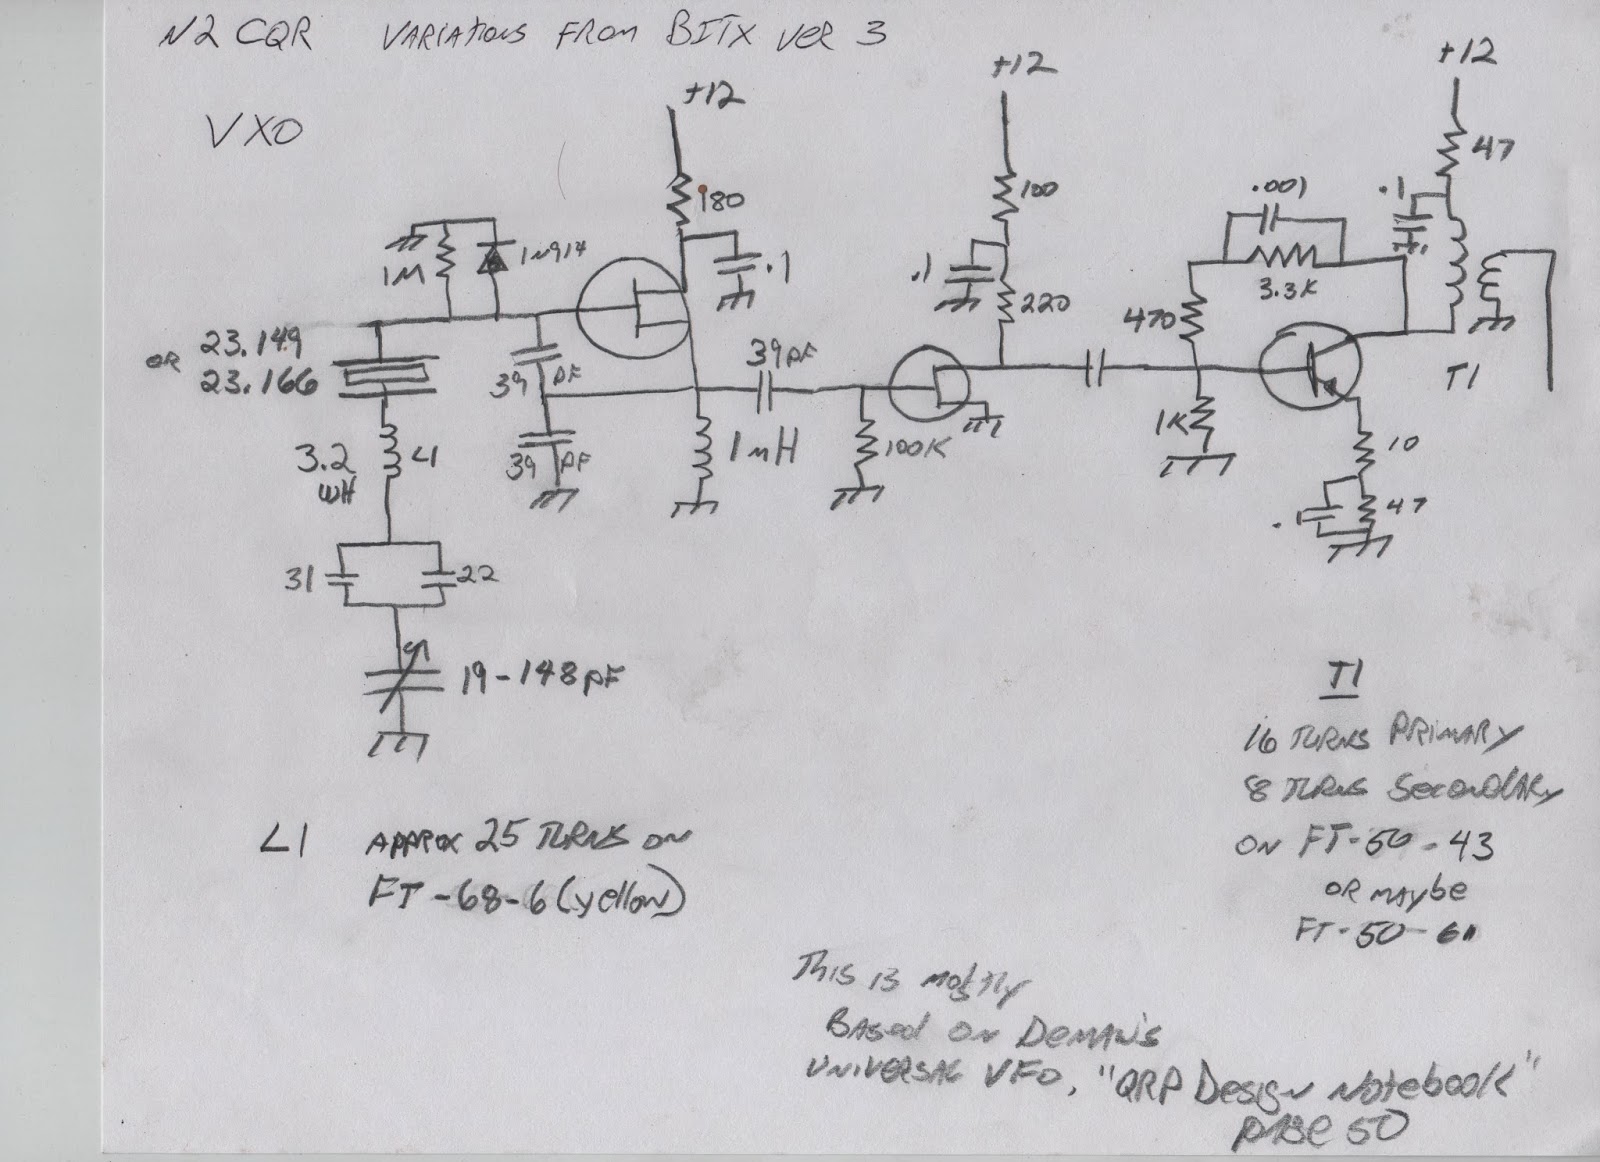 N2CQR VARIATIONS FROM BITX VER 3
VXO
+12
+12
+12
180
.1
1M
1N914
OR 23.149
23.166
39 pF
39 pF
39pF
1mH
3.2
uH
L1
31
22
19-148pF
100
.1
220
100K
.001
3.3K
470
1K
.1
47
T1
10
.1
47
L1 APPROX 25 TURNS ON
FT-68-6 (yellow)
T1
16 TURNS PRIMARY
8 TURNS SecondARy
ON FT-50-43
OR MAybe
FT-50-61
This is mostly
BASed ON DEMAW'S
UNIVERSAL VFO, "QRP Design Notebook"
PAGE 50